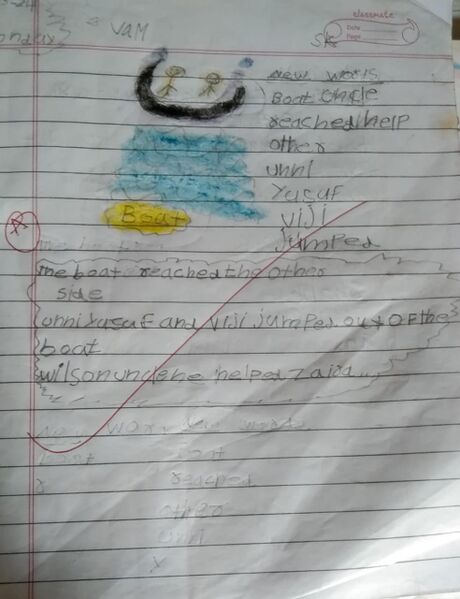 VAM
classmate
Date
Page
onday
New words
Boat Oncle
reached help
other
unni
Yusuf
viji
Jumped
Boat
the boat reached the other
side
unni Yusuf and viji jumped out of the
boat
wilson undehe helped zaira
reached
other
unni